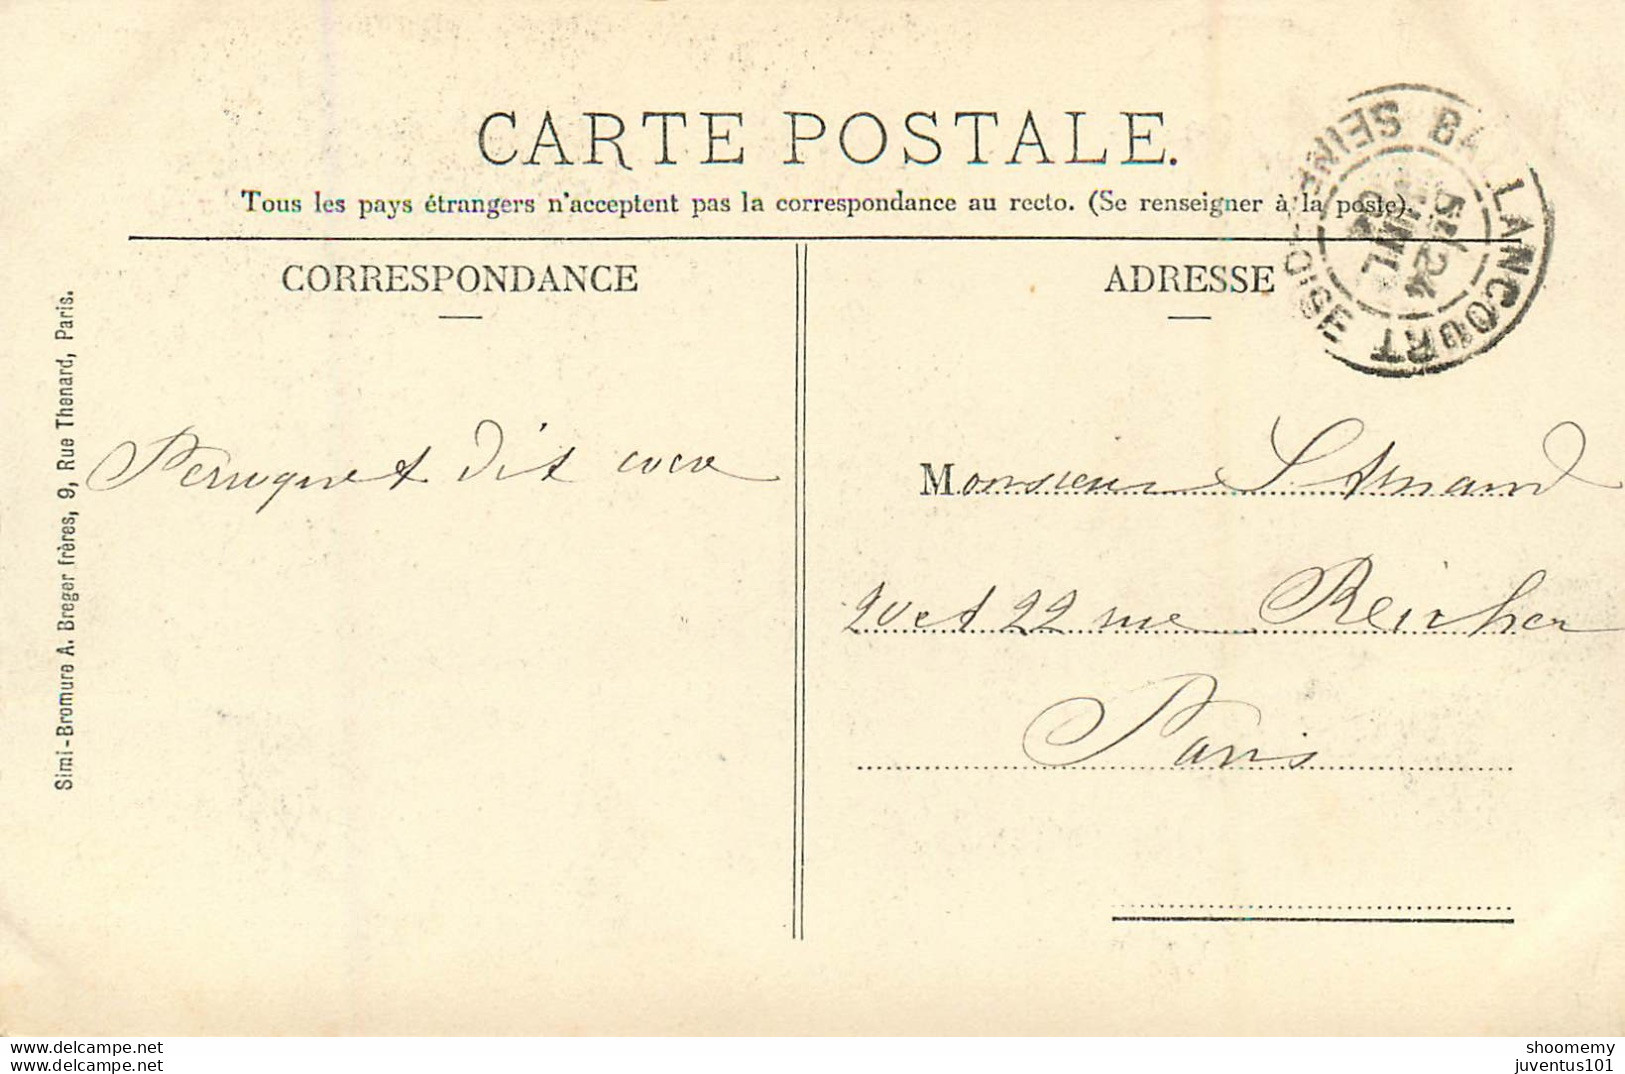 CARTE POSTALE.
Tous les pays étrangers n'acceptent pas la correspondance au recto. (Se renseigner à la poste).
CORRESPONDANCE
ADRESSE
BALLANCOURT
SEINE-ET-OISE
Simi-Bromure A. Breger frères, 9, Rue Thenard, Paris.
Peruquet dit coco
Monsieur Armand
20 et 22 rue Reicher
Paris
delcampe.net
delcampe.net
shoomemy
juventus101